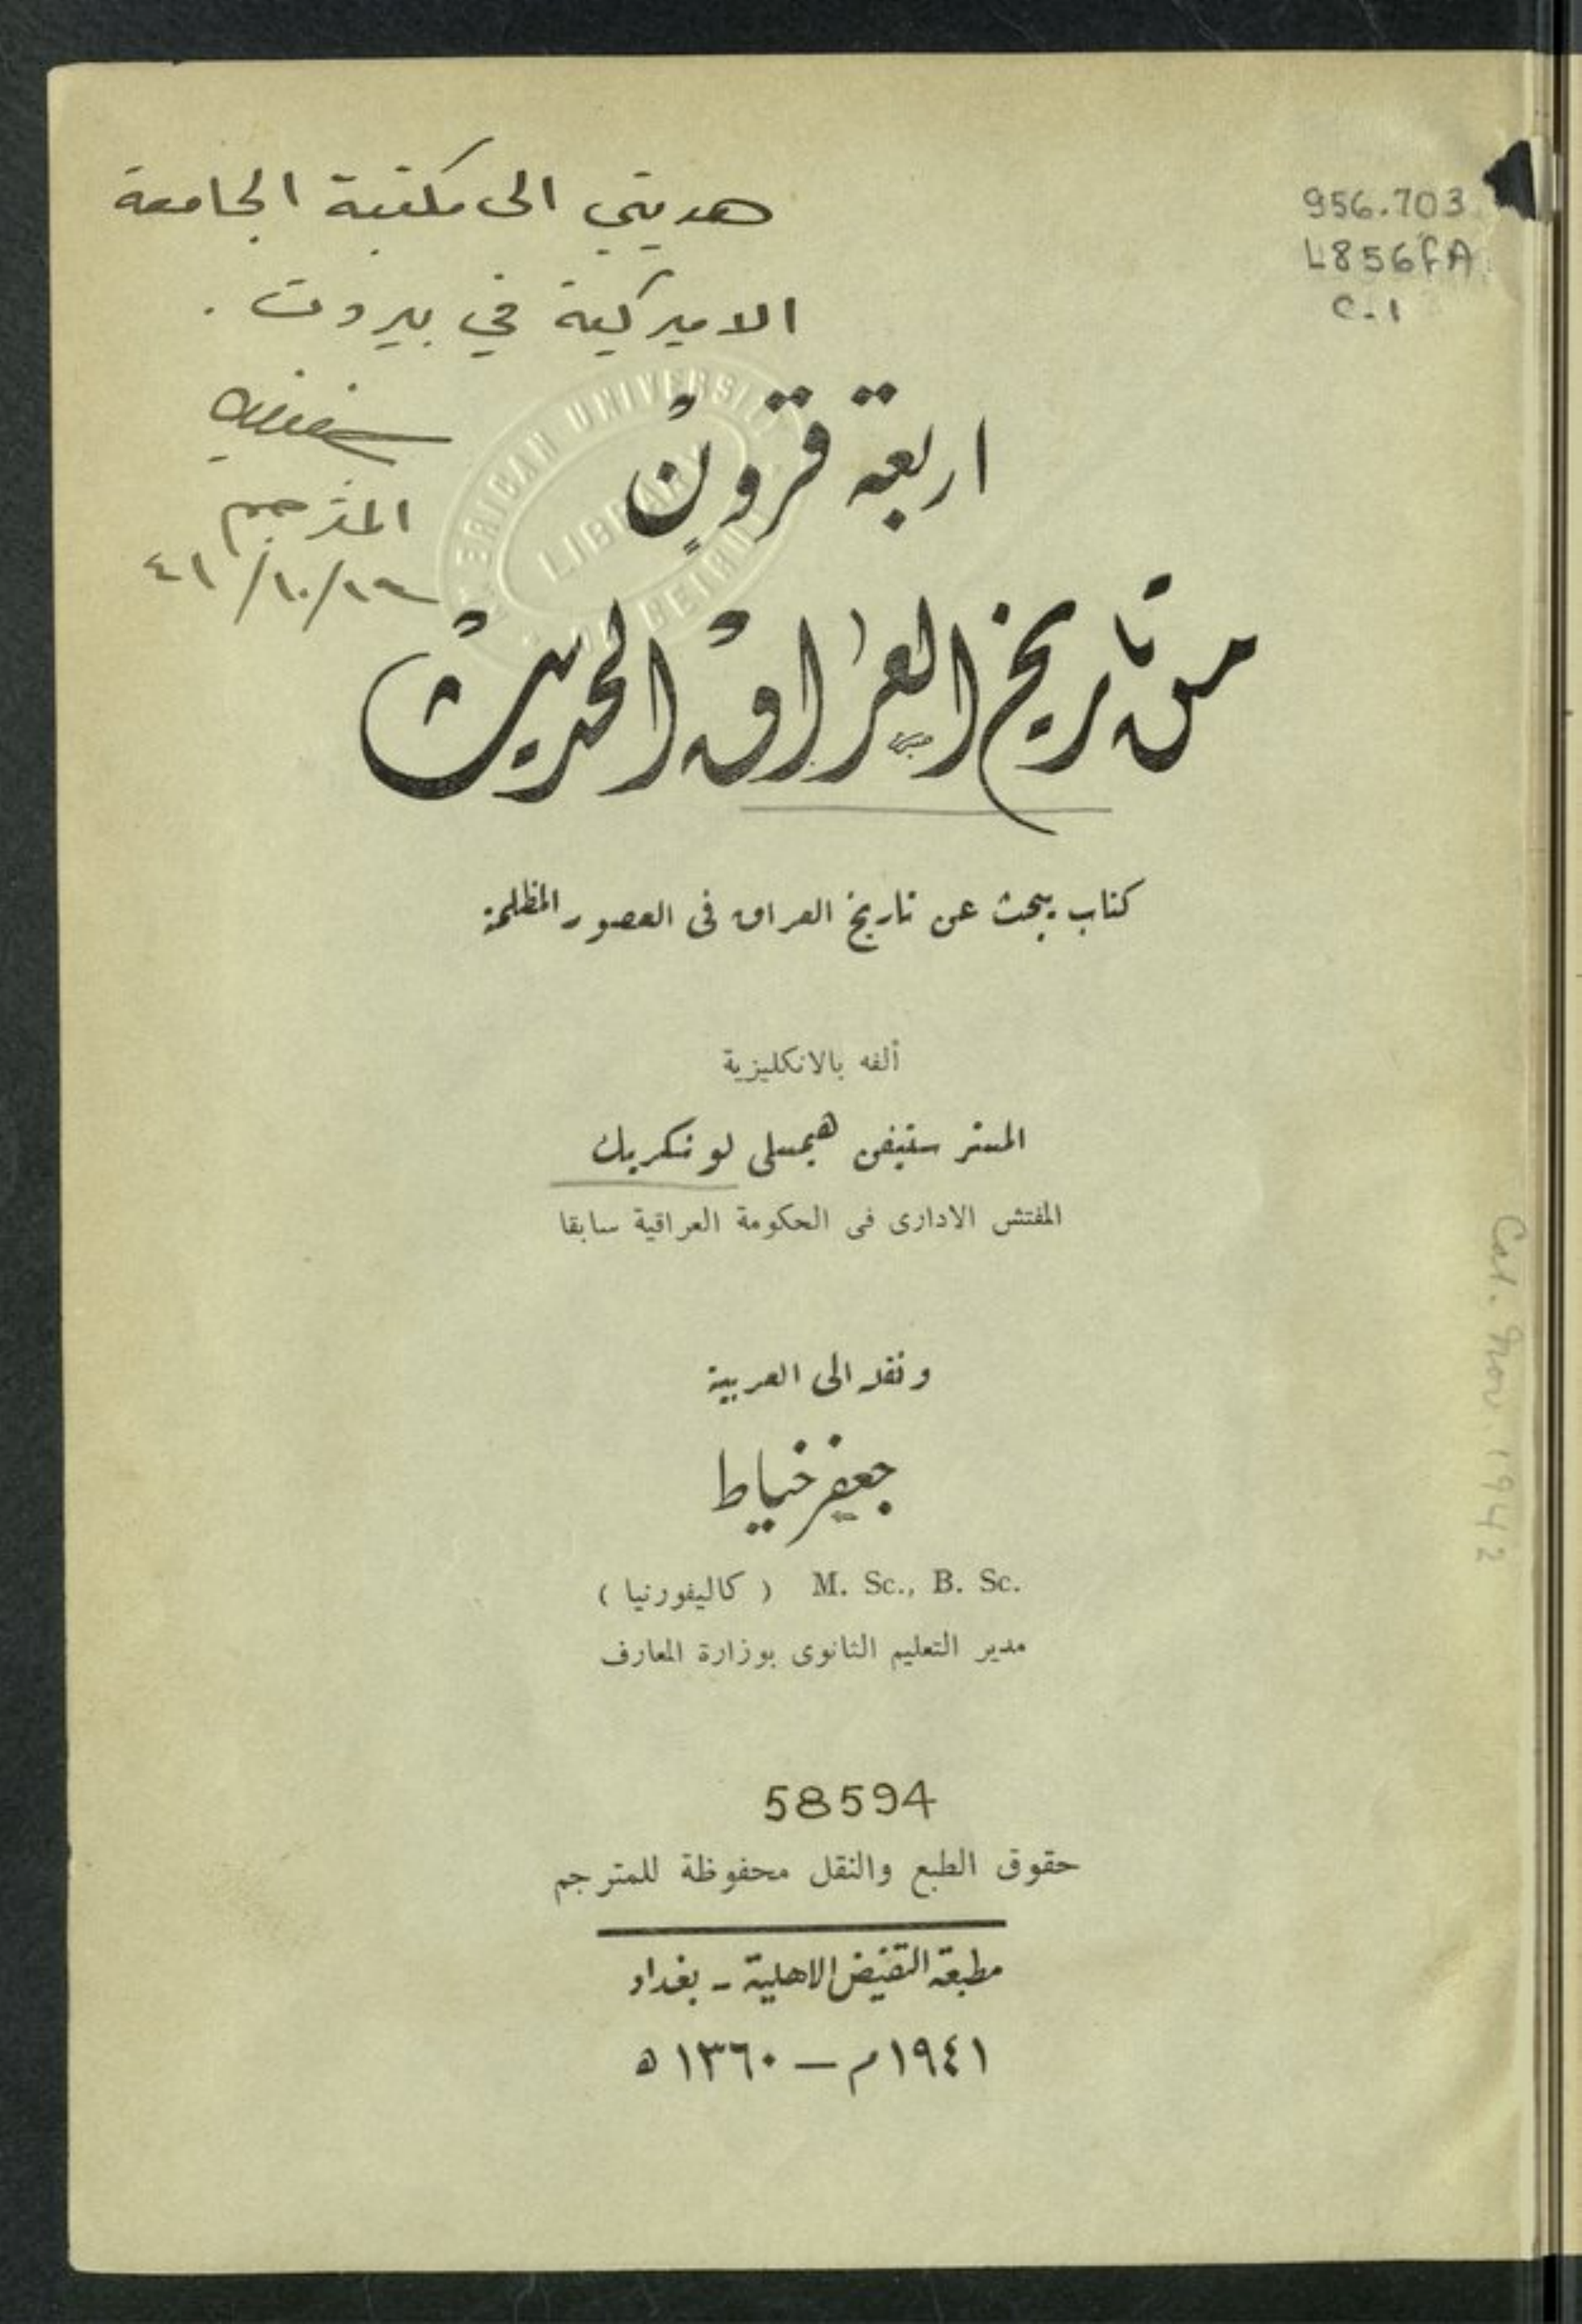 هديتي الى مكتبة الجامعة
الاميركية في بيروت .
المترجم
956.703
L856fA
c.1
AMERICAN UNIVERSITY
LIBRARY
BEIRUT
اربعة قرون
من تاريخ العراق الحديث
كتاب يبحث عن تاريخ العراق في العصور المظلمة
ألفه بالانكليزية
المستر ستيفن هيمسلي لونكريك
المفتش الادارى فى الحكومة العراقية سابقا
ونقله الى العربية
جعفر خياط
M. Sc., B. Sc. ( كاليفورنيا )
مدير التعليم الثانوى بوزارة المعارف
58594
حقوق الطبع والنقل محفوظة للمترجم
مطبعة التفيض الاهلية - بغداد
١٩٤١ م — ١٣٦٠ ه
Cat. Nov. 1942